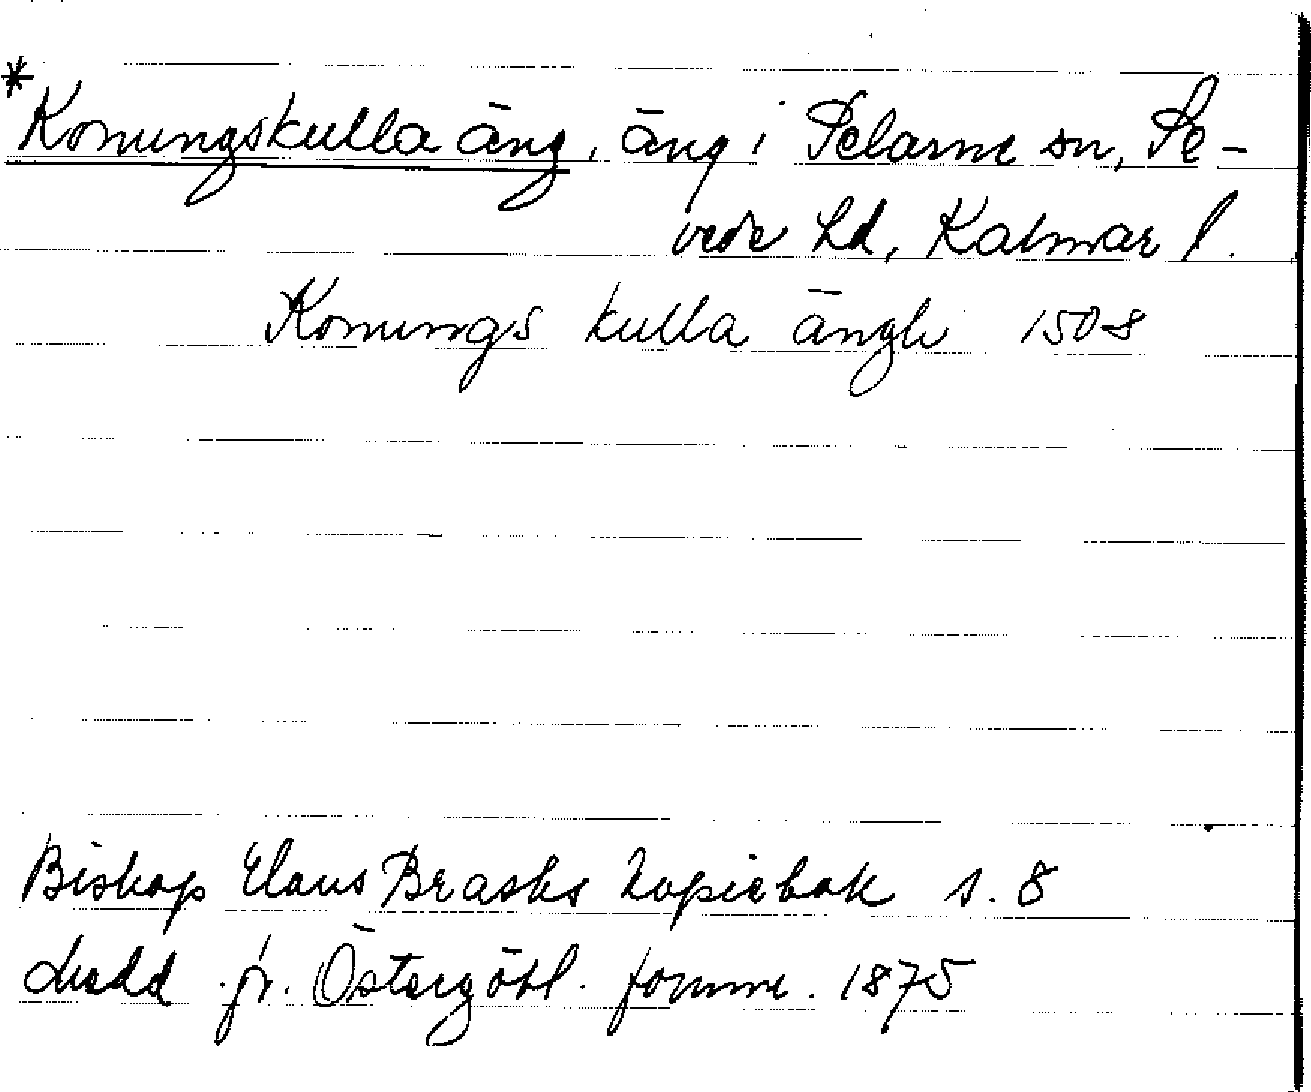 *Konungskulla äng, äng i Pelarne sn, Se-
vede hd, Kalmar l.
Konungs kulla ängh 1508
Biskop Claus Brasks kopiebok s. 8
Medd fr. Östergötl. fornm. 1875